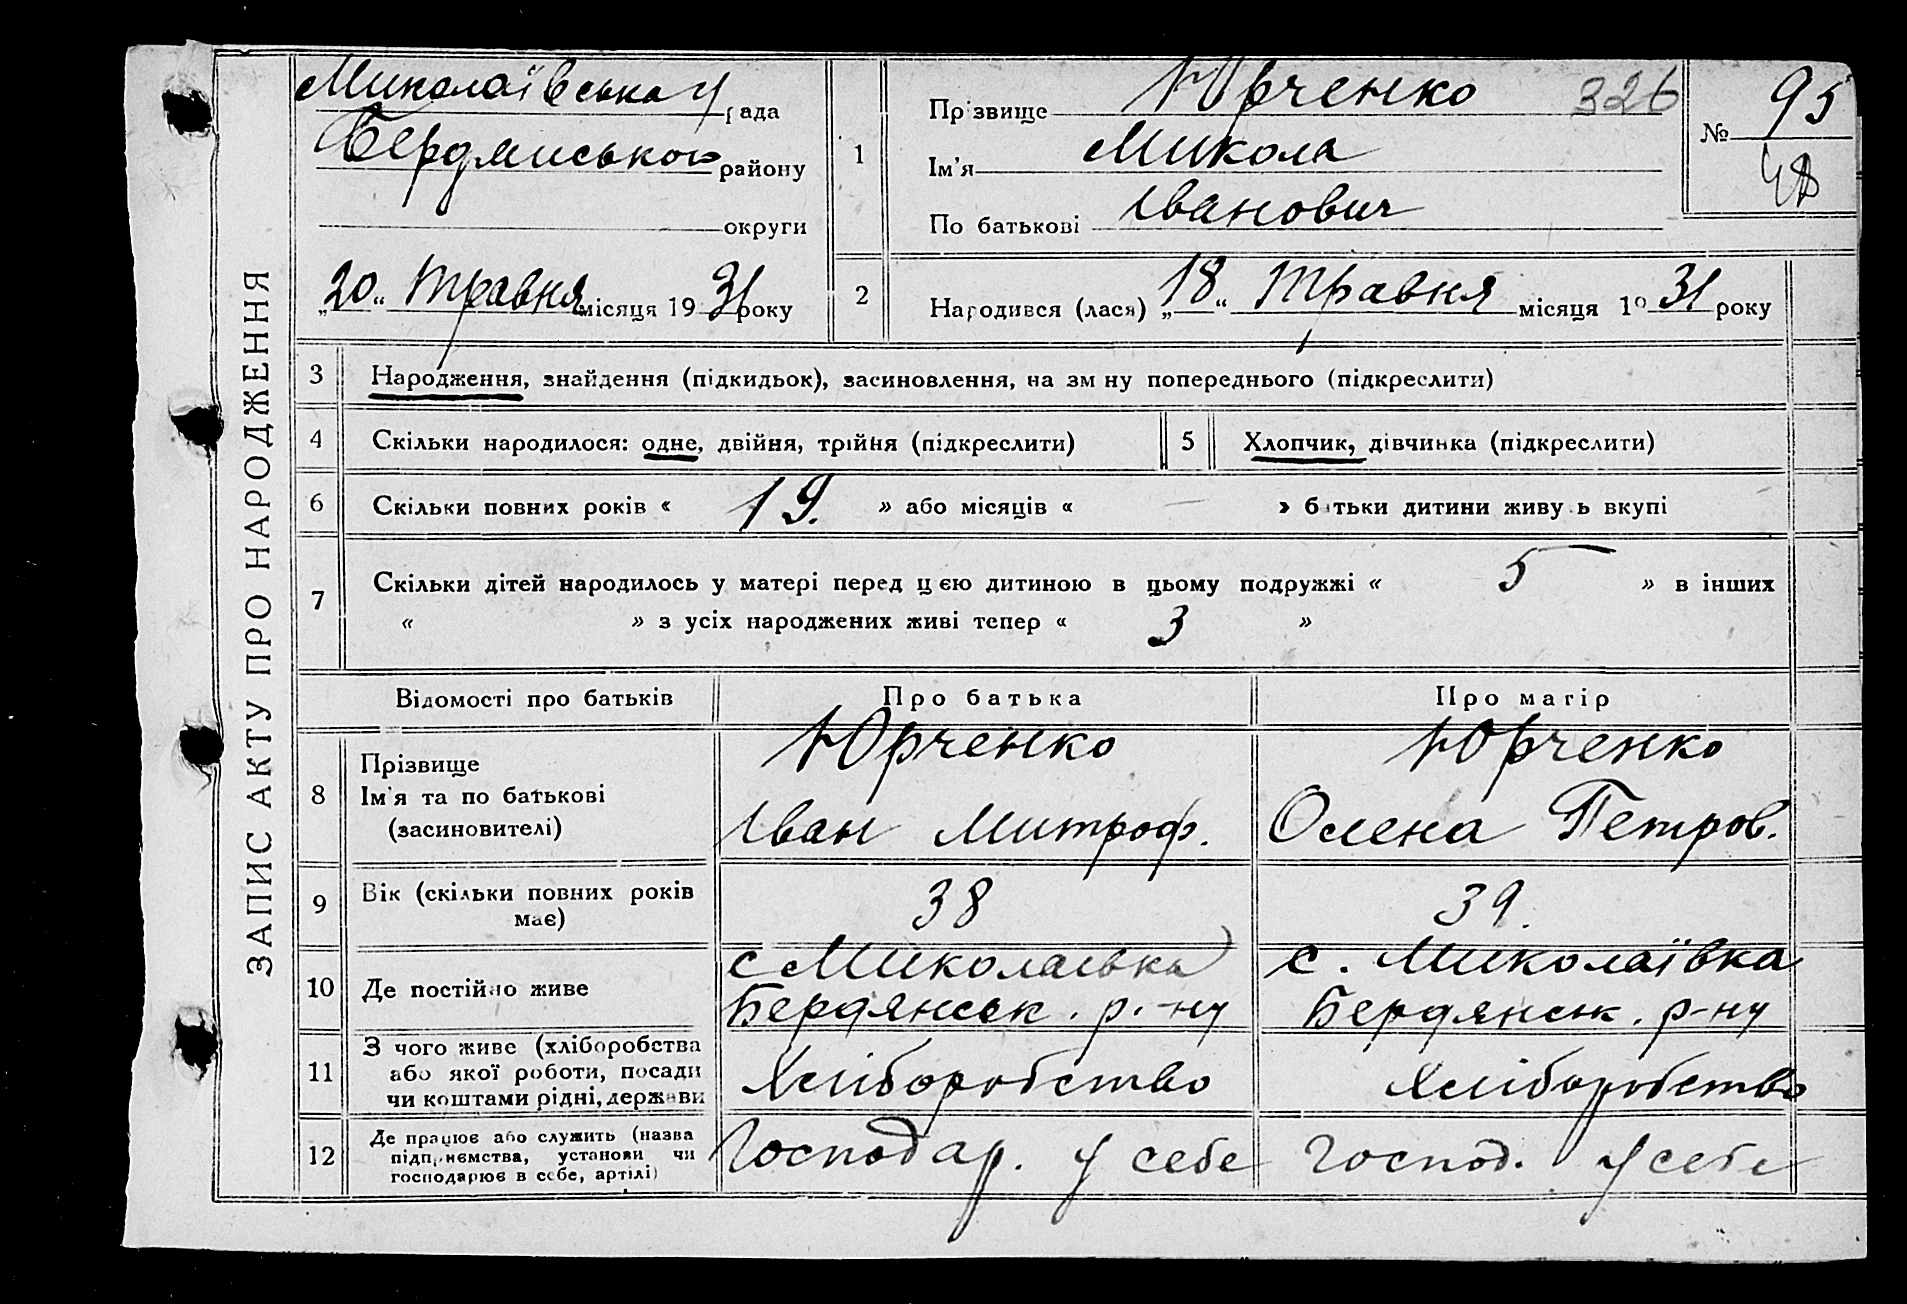 ЗАПИС АКТУ ПРО НАРОДЖЕННЯ
Миколаївська рада
Бердянського району
округи
„20“ Травня місяця 1931 року
1
Прізвище Юрченко
326
Ім’я Микола
По батькові Іванович
№ 95
2
Народився (лася) „18“ Травня місяця 1931 року
3 Народження, знайдення (підкидьок), засиновлення, на зміну попереднього (підкреслити)
4 Скільки народилося: одне, двійня, трійня (підкреслити)
5 Хлопчик, дівчинка (підкреслити)
6 Скільки повних років « 19. » або місяців « — » батьки дитини живуть вкупі
7 Скільки дітей народилось у матері перед цією дитиною в цьому подружжі « 5 » в інших
« » з усіх народжених живі тепер « 3 »
Відомості про батьків
Про батька
Про матір
8 Прізвище
Ім’я та по батькові
(засиновителі)
Юрченко
Іван Митроф.
Юрченко
Олена Петров.
9 Вік (скільки повних років
має)
38
39.
10 Де постійно живе
с Миколаївка
Бердянськ. р.-ну
с. Миколаївка
Бердянськ. р-ну
11 З чого живе (хліборобства
або якої роботи, посади
чи коштами рідні, держави
Хліборобство
Хліборобство
12 Де працює або служить (назва
підприємства, установи чи
господарює в себе, артілі)
Господар. у себе
Господ. у себе